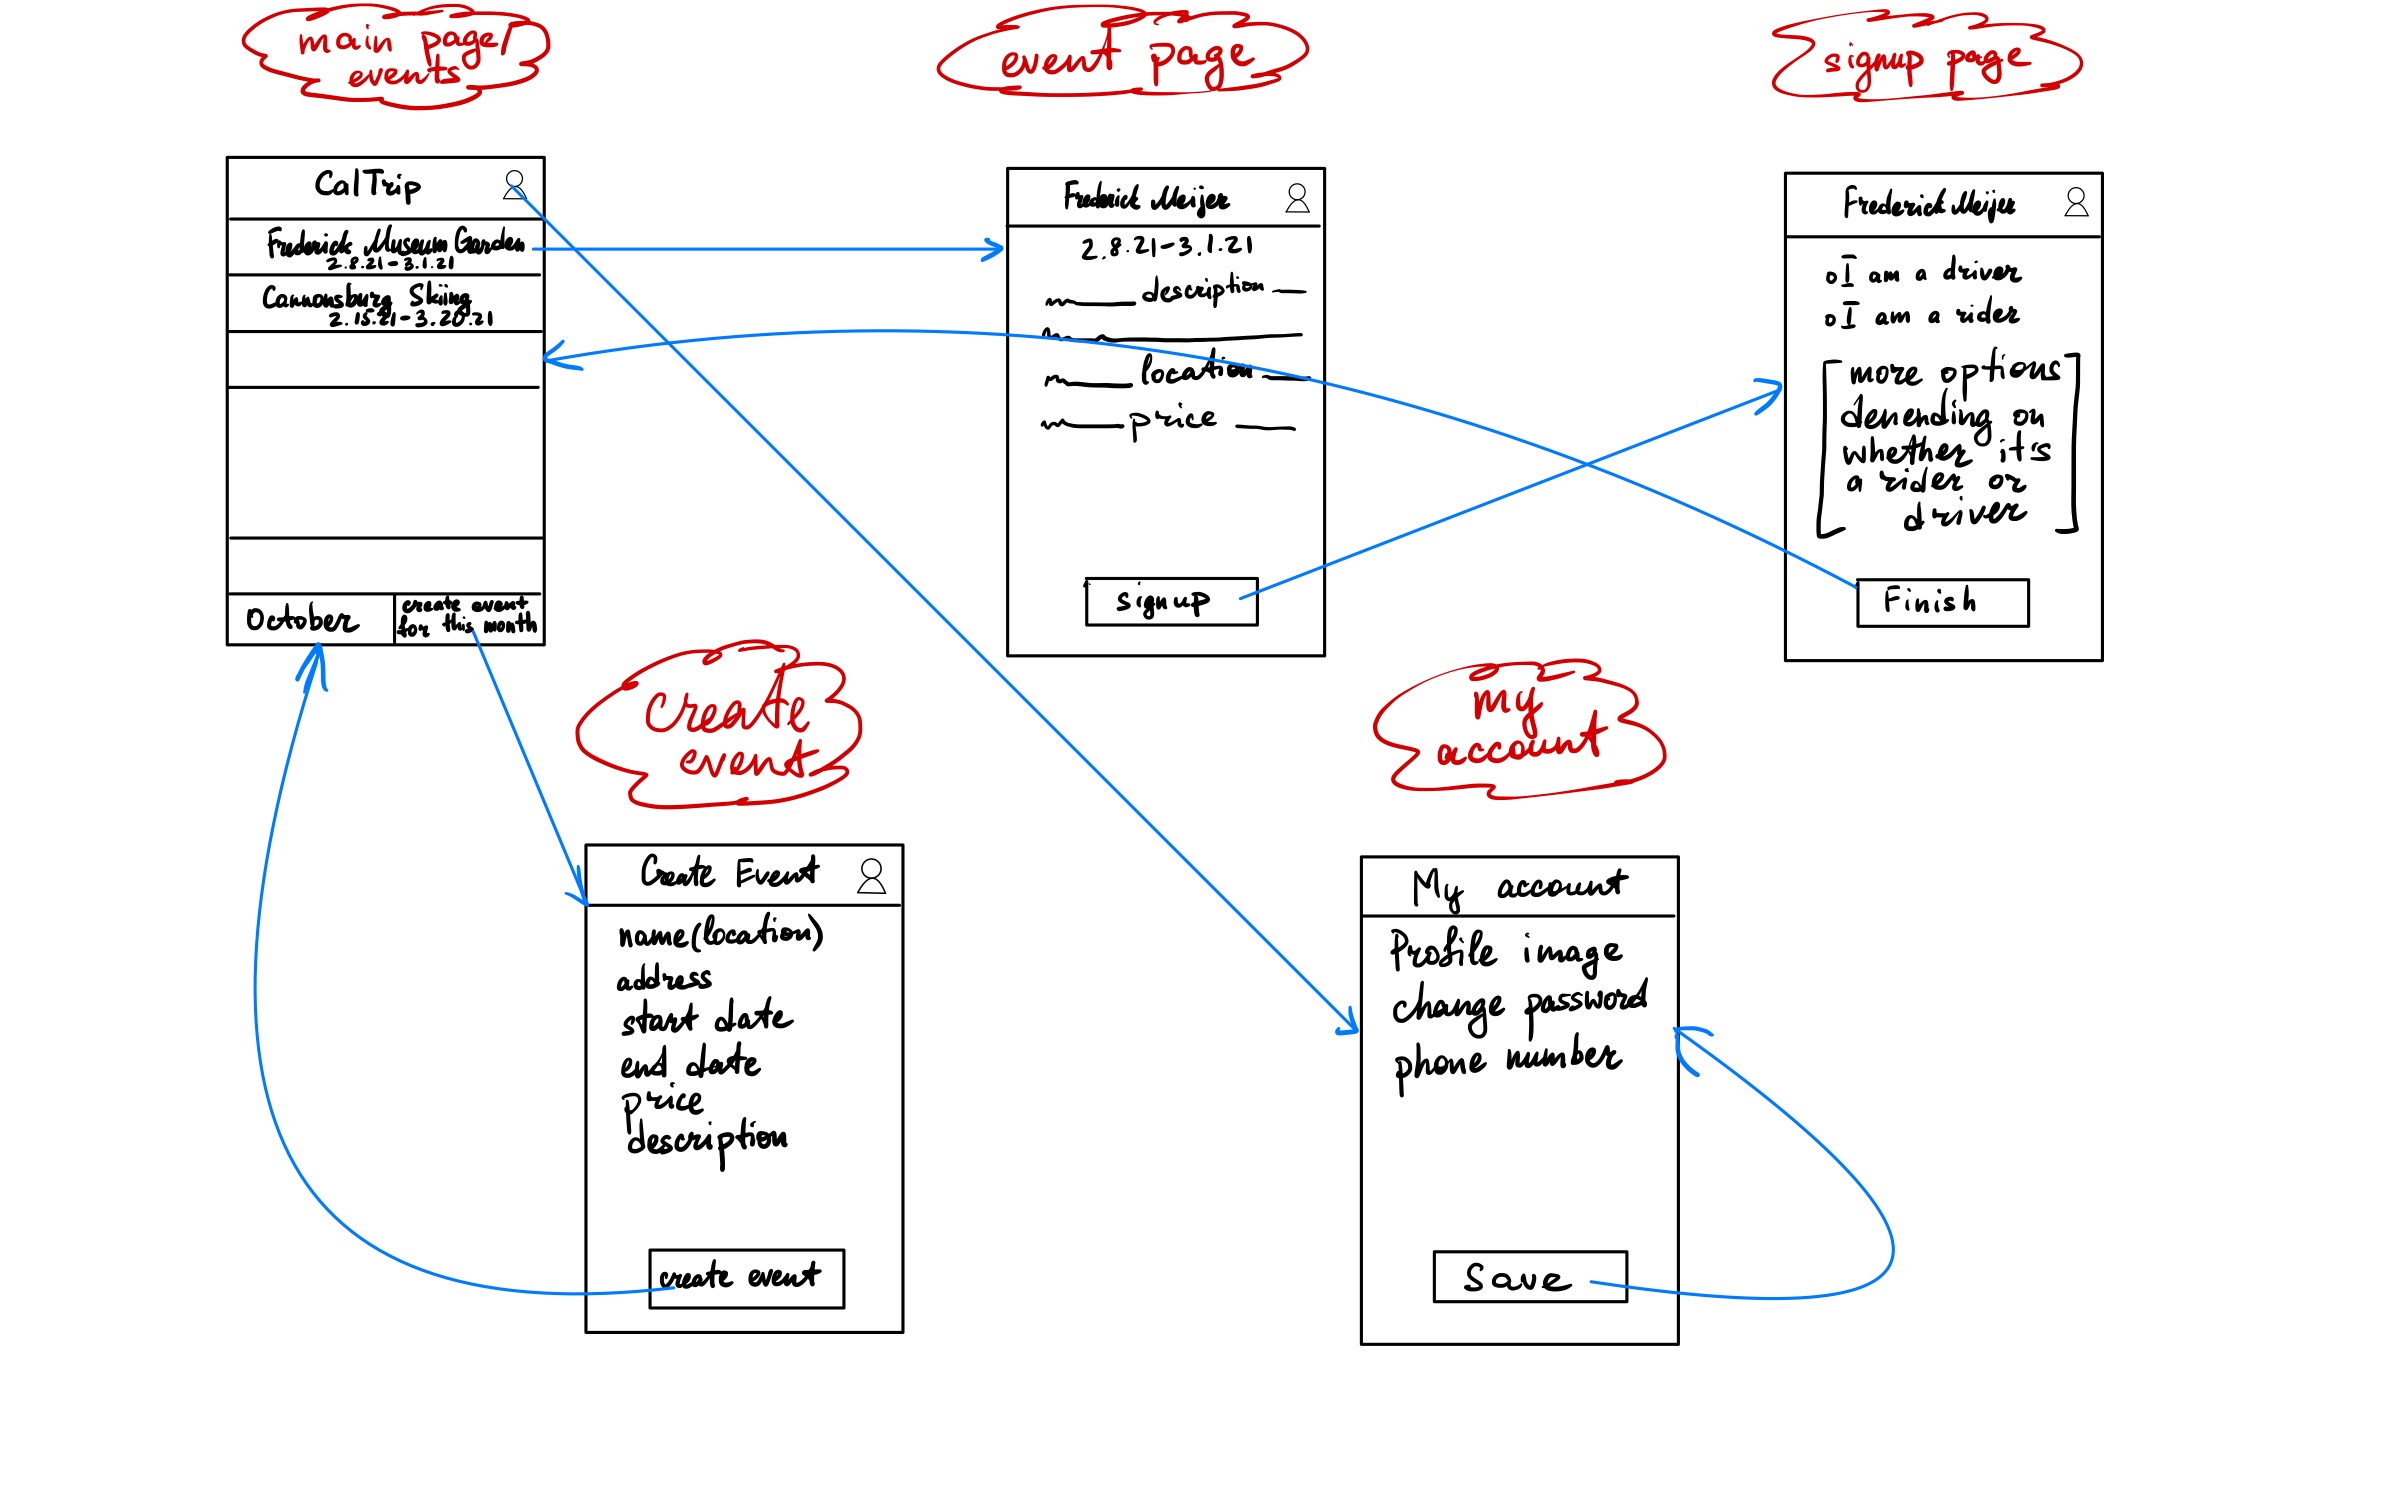 main page/
events
event page
signup page
CalTrip
Frederick Museum Garden
2.8.21-3.1.21
Cannonsburg Skiing
2.15.21-3.20.21
October
create event
for this month
Frederick Meijer
2.8.21-3.1.21
description
location
price
signup
Frederick Meijer
I am a driver
I am a rider
[more options
denending on
whether it's
a rider or
driver]
Finish
create
event
my
account
Create Event
name(location)
address
start date
end date
price
description
create event
My account
Profile image
change password
phone number
Save